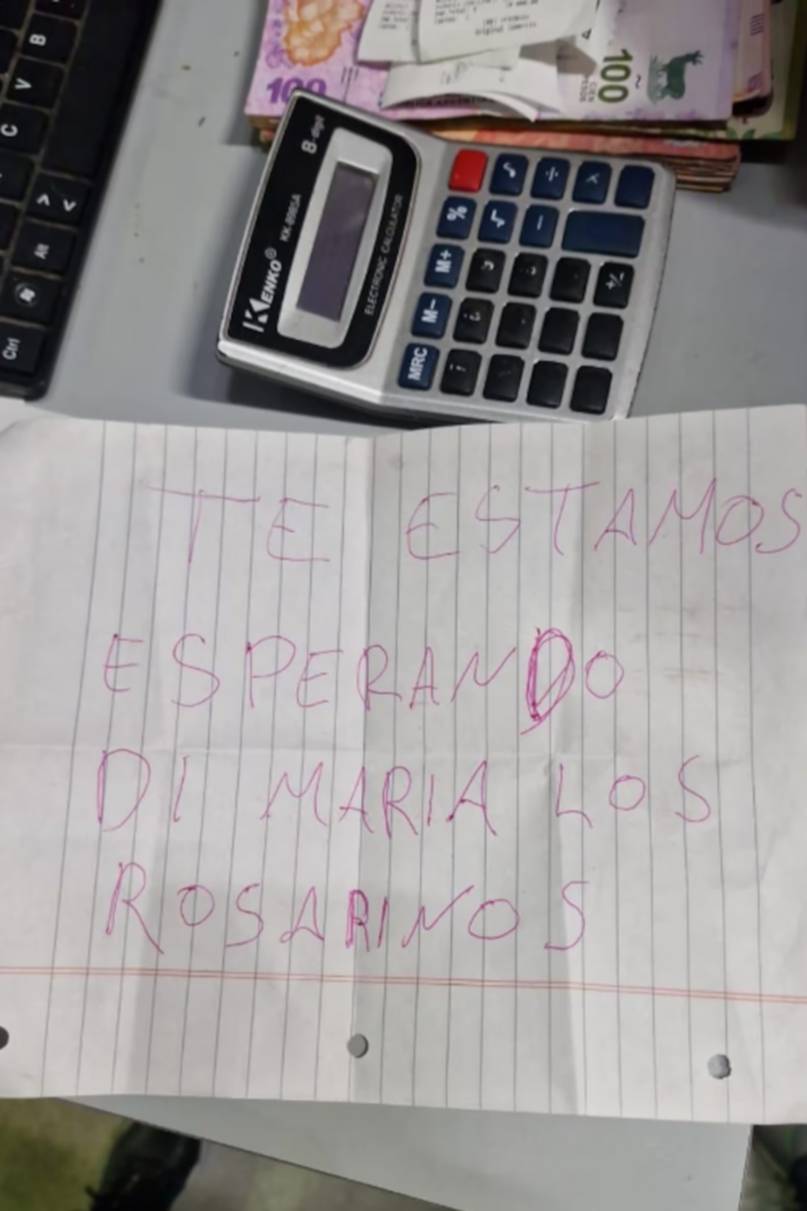 B
V
C
> <
Alt
Ctrl
100
100
CIEN
8-digit
KENKO®
KK-8985A
ELECTRONIC CALCULATOR
÷ ×
% √ −
M+ +/-
M−
MRC
TE ESTAMOS
ESPERANDO
DI MARIA LOS
ROSARINOS